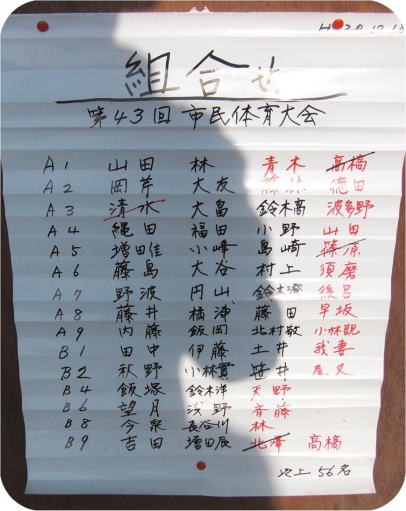 組合せ
第43回 市民体育大会
A1 山田 林 青木 高橋
A2 岡芹 大友 徳田
A3 清水 大畠 鈴木高 波多野
A4 縄田 福田 小野 山田
A5 増田佳 小峰 島崎 篠原
A6 藤島 大谷 村上 須磨
A7 野波 円山 鈴木澄 後呂
A8 藤井 橋浦 藤田 早坂
A9 内藤 飯岡 北村敬 小林範
B1 田中 伊藤 土井 我妻
B2 秋野 小林實 笹井
B4 飯塚 鈴木洋 天野
B6 望月 浅野 斉藤
B8 今泉 長谷川 林
B9 吉田 増田辰 北澤 高橋
以上 56名